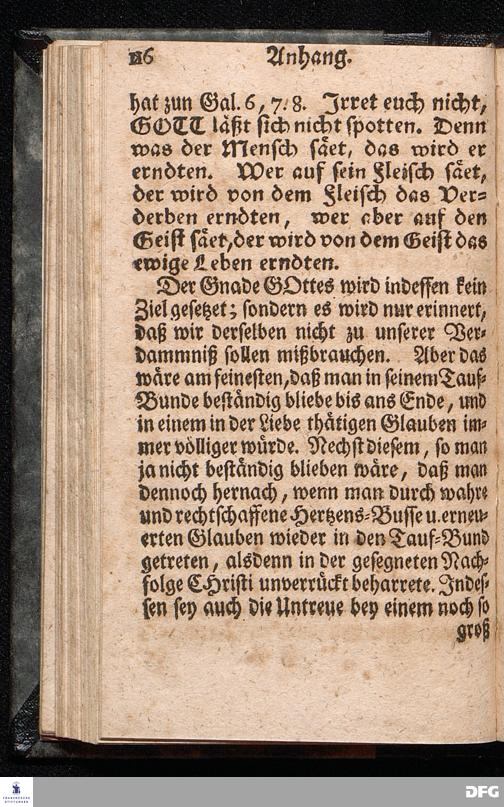 116 Anhang.
hat zun Gal. 6, 7. 8. Irret euch nicht,
GOTT läßt sich nicht spotten. Denn
was der Mensch säet, das wird er
erndten. Wer auf sein Fleisch säet,
der wird von dem Fleisch das Ver-
derben erndten, wer aber auf den
Geist säet, der wird von dem Geist das
ewige Leben erndten.
Der Gnade GOttes wird indessen kein
Ziel gesetzet; sondern es wird nur erinnert,
daß wir derselben nicht zu unserer Ver-
dammniß sollen mißbrauchen. Aber das
wäre am feinesten, daß man in seinem Tauf-
Bunde beständig bliebe bis ans Ende, und
in einem in der Liebe thätigen Glauben im-
mer völliger würde. Nechst diesem, so man
ja nicht beständig blieben wäre, daß man
dennoch hernach, wenn man durch wahre
und rechtschaffene Hertzens-Busse u. erneu-
erten Glauben wieder in den Tauf-Bund
getreten, alsdenn in der gesegneten Nach-
folge CHristi unverrückt beharrete. Indes-
sen sey auch die Untreue bey einem noch so
groß
FRANCKESCHE
STIFTUNGEN
DFG